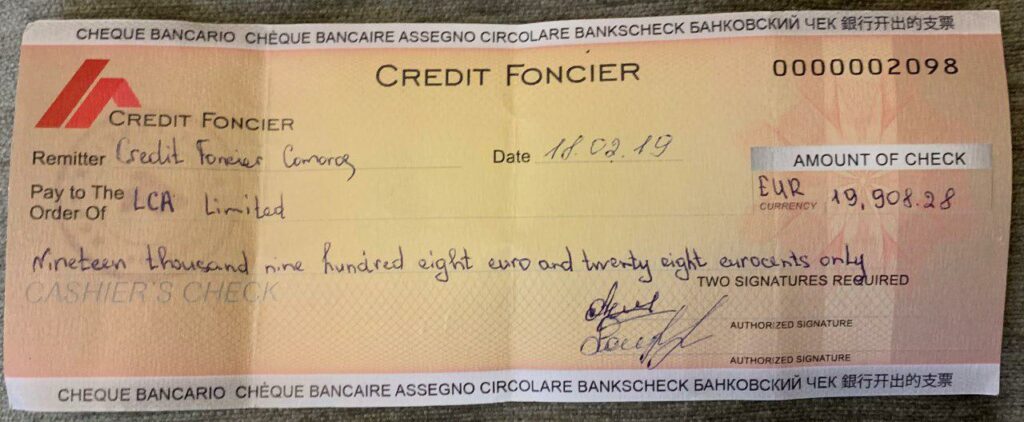 CHEQUE BANCARIO CHÈQUE BANCAIRE ASSEGNO CIRCOLARE BANKSCHECK БАНКОВСКИЙ ЧЕК 銀行开出的支票
CREDIT FONCIER
0000002098
CREDIT FONCIER
Remitter Credit Foncier Comoros
Date 18.02.19
AMOUNT OF CHECK
Pay to The
Order Of LCA Limited
EUR
CURRENCY 19,908.28
Nineteen thousand nine hundred eight euro and twenty eight eurocents only
CASHIER'S CHECK
TWO SIGNATURES REQUIRED
AUTHORIZED SIGNATURE
AUTHORIZED SIGNATURE
CHEQUE BANCARIO CHÈQUE BANCAIRE ASSEGNO CIRCOLARE BANKSCHECK БАНКОВСКИЙ ЧЕК 銀行开出的支票